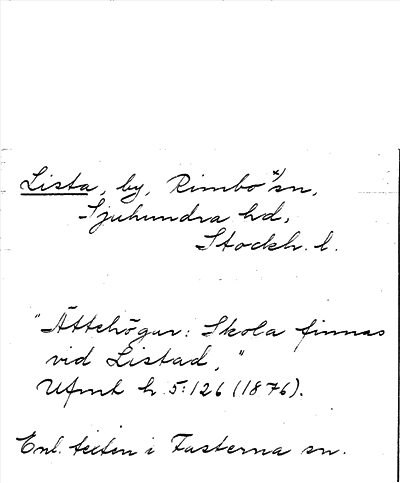 Lista, by, Rimbo x) sn,
Sjuhundra hd,
Stockh. l.
"Ättehögar: Skola finnas
vid Listad,"
Ufmt h. 5:126 (1876).
Enl. texten i Fasterna sn.